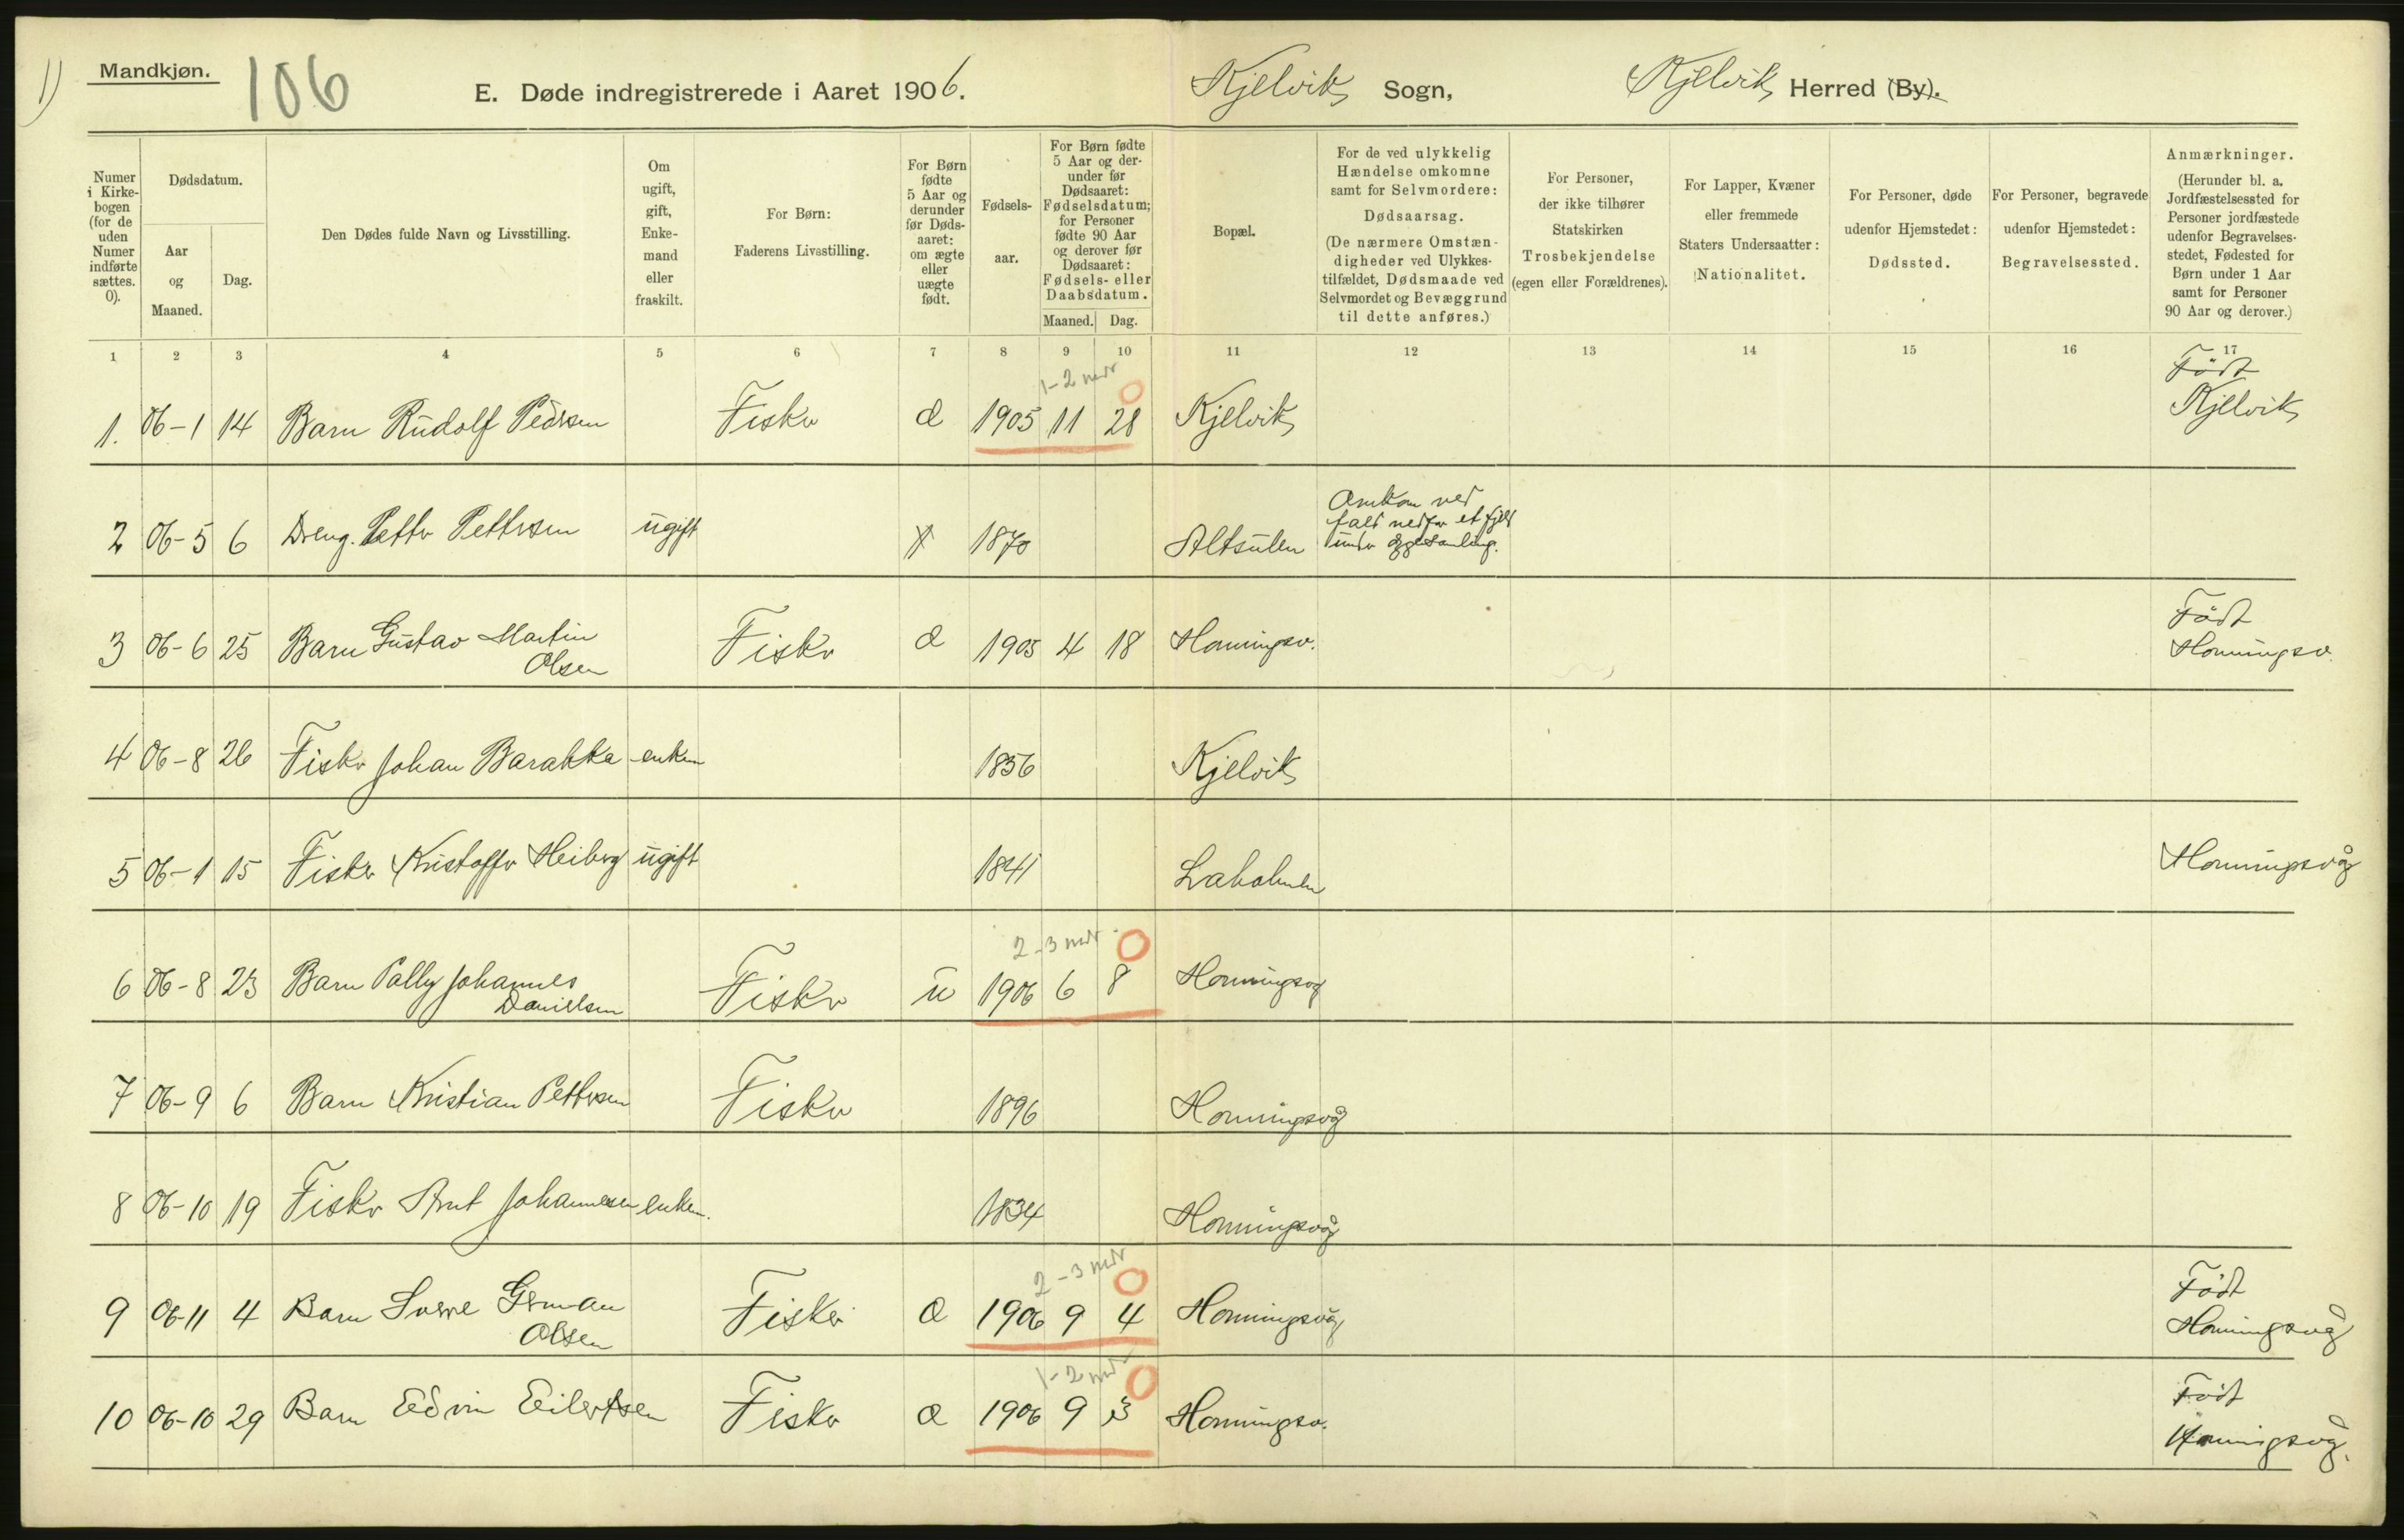 1)
Mandkjøn.
106
E. Døde indregistrerede i Aaret 1906.
Kjelvik Sogn,
Kjelvik Herred (By).
Numer
i Kirke-
bogen
(for de
uden
Numer
indførte
sættes.
0).
Dødsdatum.
Aar
og
Maaned.
Dag.
Den Dødes fulde Navn og Livsstilling.
Om
ugift,
gift,
Enke-
mand
eller
fraskilt.
For Børn:
Faderens Livsstilling.
For Børn
fødte
5 Aar og
derunder
før Døds-
aaret:
om ægte
eller
uægte
født.
Fødsels-
aar.
For Børn fødte
5 Aar og der-
under før
Dødsaaret:
Fødselsdatum;
for Personer
fødte 90 Aar
og derover før
Dødsaaret:
Fødsels- eller
Daabsdatum.
Maaned. Dag.
Bopæl.
For de ved ulykkelig
Hændelse omkomne
samt for Selvmordere:
Dødsaarsag.
(De nærmere Omstæn-
digheder ved Ulykkes-
tilfældet, Dødsmaade ved
Selvmordet og Bevæggrund
til dette anføres.)
For Personer,
der ikke tilhører
Statskirken
Trosbekjendelse
(egen eller Forældrenes).
For Lapper, Kvæner
eller fremmede
Staters Undersaatter:
Nationalitet.
For Personer, døde
udenfor Hjemstedet:
Dødssted.
For Personer, begravede
udenfor Hjemstedet:
Begravelsessted.
Anmærkninger.
(Herunder bl. a.
Jordfæstelsessted for
Personer jordfæstede
udenfor Begravelses-
stedet, Fødested for
Børn under 1 Aar
samt for Personer
90 Aar og derover.)
1 2 3 4 5 6 7 8 9 10 11 12 13 14 15 16 17
1-2 mdr 0
Født
1. 06-1 14 Barn Rudolf Pedersen Fisker æ 1905 11 28 Kjelvik Kjelvik
Omkom ved
fald nedfor et fjeld
2 06-5 6 Dreng. Petter Pettersen ugift 1870 Altsulen under eggesamling.
Født
3 06-6 25 Barn Gustav Martin Fisker æ 1905 4 18 Honningsv. Honningsv.
Olsen
4 06-8 26 Fisker Johan Barakka enkem 1856 Kjelvik
5 06-1 15 Fisker Kristoffer Heiberg ugift 1841 Laholmen Honningsvåg
2-3 mdr 0
6 06-8 23 Barn Pally Johannes Fisker u 1906 6 8 Honningsvg
Danielsen
7 06-9 6 Barn Kristian Pettersen Fisker 1896 Honningsvåg
8 06-10 19 Fisker Arnt Johannesen enkem. 1834 Honningsvåg
2-3 mdr 0
Født
9 06-11 4 Barn Sverre German Fisker æ 1906 9 4 Honningsvåg Honningsvåg
Olsen
1-2 mdr 0
Født
10 06-10 29 Barn Edvin Eilertsen Fisker æ 1906 9 3 Honningsv. Honnigsvåg.